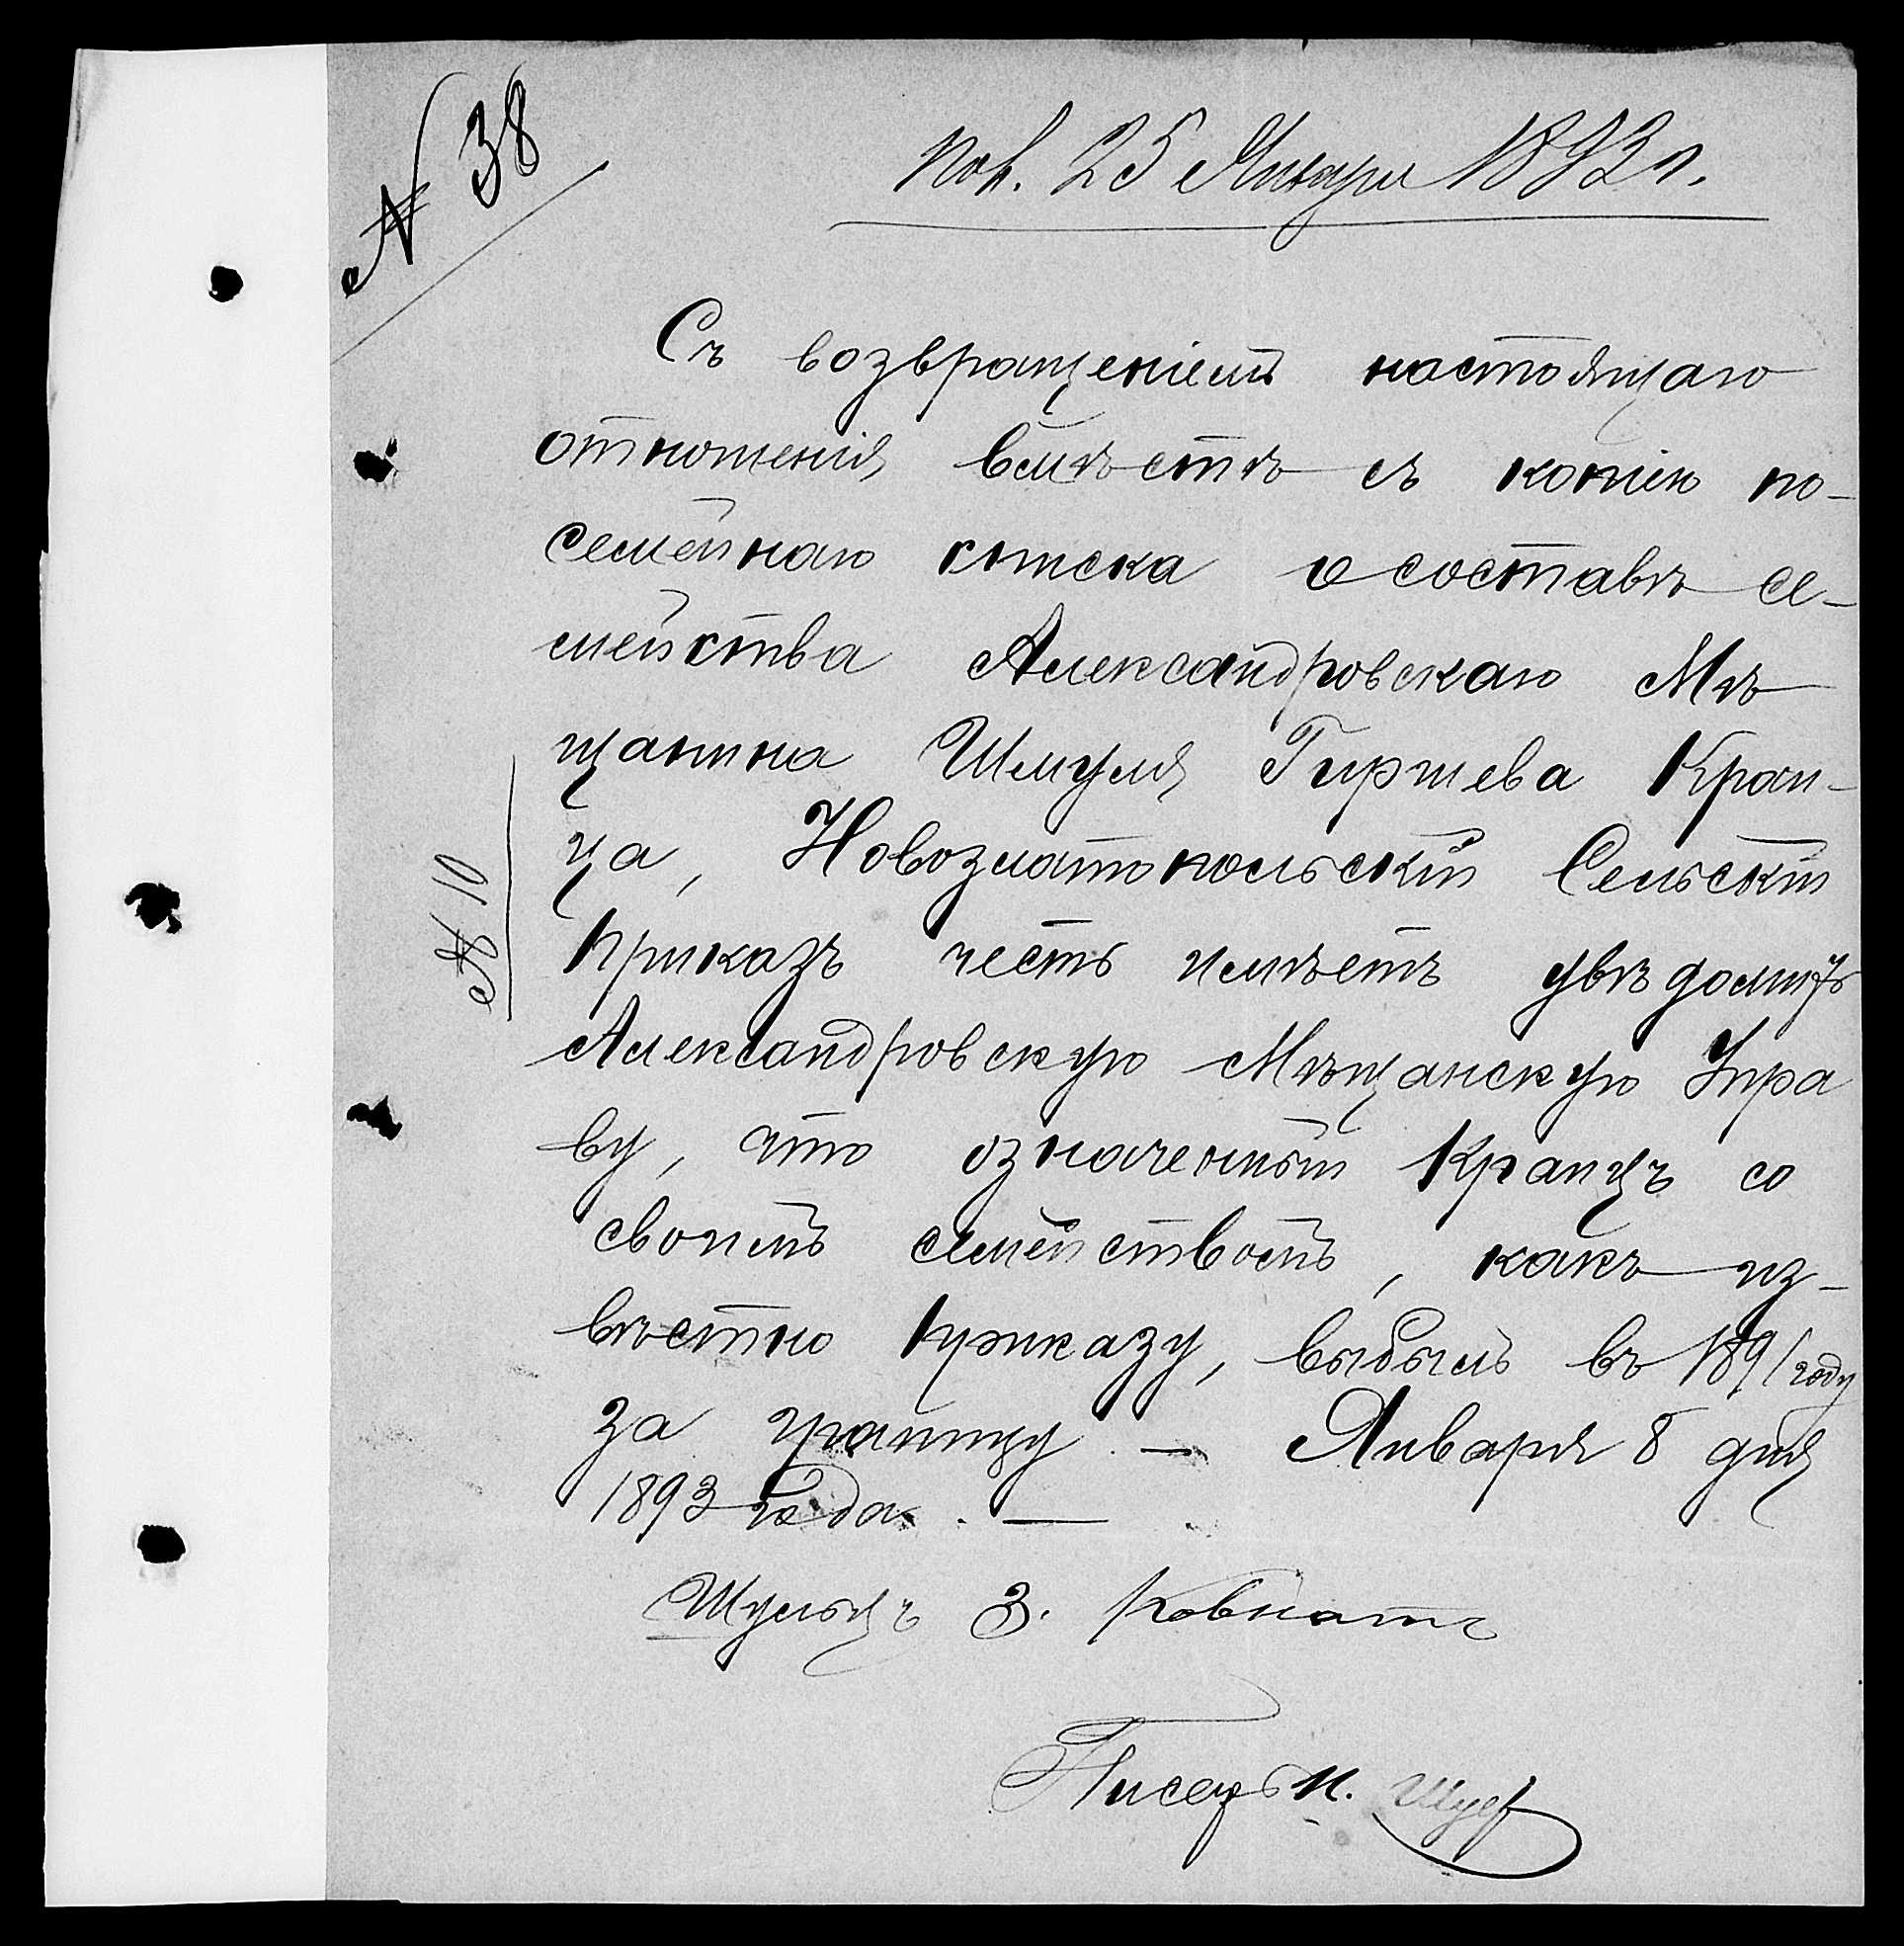 № 38
Пол. 25 Января 1893 г.
Съ возвращеніемъ настоящаго
отношенія вмѣстѣ съ копіею по-
семейнаго списка о составѣ се-
мейства Александровскаго Мѣ
щанина Шмуля Гиршева Кран-
ца, Новозлатопольскій Сельскій
№ 10
Приказъ честь имѣетъ увѣдомить
Александровскую Мѣщанскую Упра
ву, что означенный Кранцъ со
своимъ семействомъ, какъ из-
вѣстно Приказу, выбылъ въ 1891 году
за границу. — Января 8 дня
1893 года. —
Шульцъ З. Ковнатъ
Писарь М.